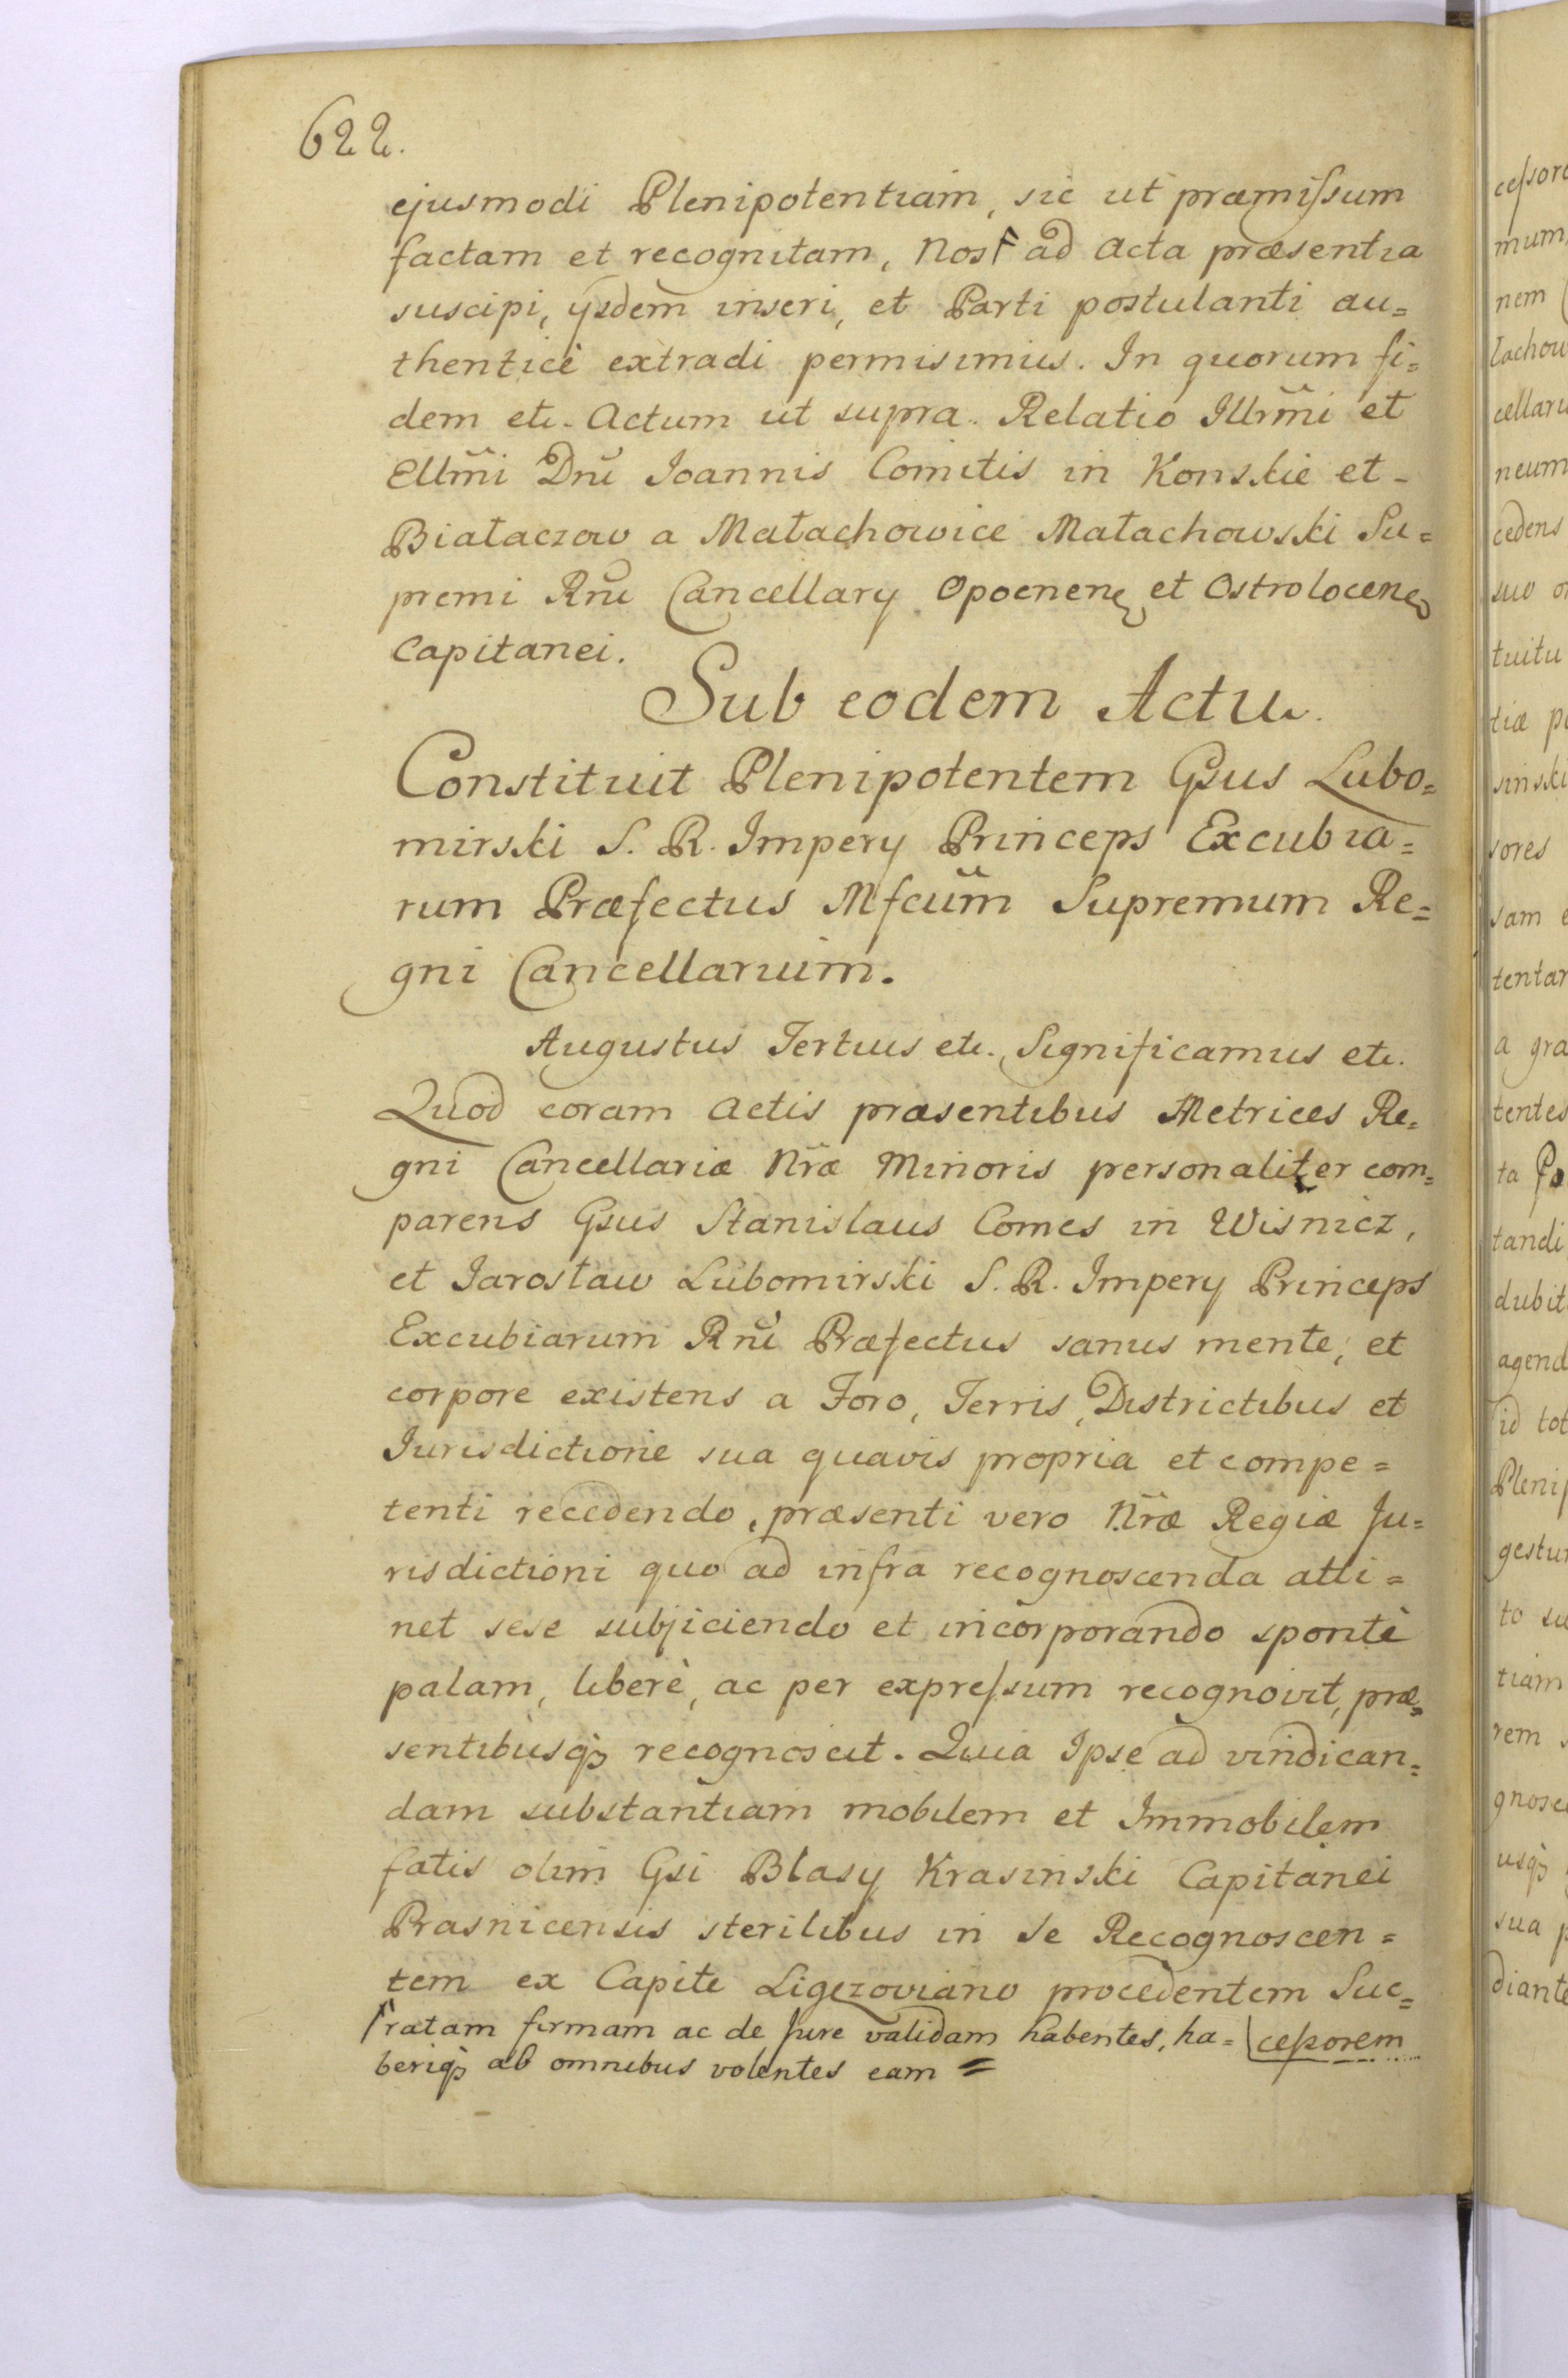 622.
ejusmodi Plenipotentiam, sic ut præmissum
factam et recognitam, Nos ad Acta præsentia
suscipi, ijsdem inseri, et Parti postulanti au=
thenticè extradi permisimus. In quorum fi=
dem etc. Actum ut supra. Relatio Illrm̃i et
Ellm̃i Dnĩ Joannis Comitis in Konskie et
Białaczow a Małachowice Małachowski Su=
premi Rnĩ Cancellarij Opocnen et Ostrolocen
Capitanei.
Sub eodem Actu.
Constituit Plenipotentem Gsus Lubo=
mirski S. R. Imperij Princeps Excubia=
rum Præfectus Mfcum̃ Supremum Re=
gni Cancellarium.
Augustus Tertius etc. Significamus etc.
Quod coram Actis præsentibus Metrices Re=
gni Cancellariæ Nr̃æ Minoris personaliter com=
parens Gsus Stanislaus Comes in Wisnicz,
et Jarosław Lubomirski S. R. Imperij Princeps
Excubiarum Rnĩ Præfectus sanus mente, et
corpore existens a Foro, Terris, Districtibus et
Jurisdictione sua quavis propria et compe=
tenti recedendo, præsenti vero Nr̃æ Regiæ Ju=
risdictioni quo ad infra recognoscenda atti=
net sese subjiciendo et incorporando spontè
palam, liberè, ac per expressum recognovit, præ=
sentibusq; recognoscit. Quia Ipse ad vindican=
dam substantiam mobilem et Immobilem
fatis olim Gsi Blasij Krasinski Capitanei
Prasnicensis sterilibus in se Recognoscen=
tem ex Capite Ligezoviano procedentem Suc=
cessorem
ratam firmam ac de Jure validam habentes, ha=
beriq; ab omnibus volentes eam =
mum
nem
lachow
neum
cedens
suo
tuitu
tiæ
sinski
sores
sam
tentar
a gra
tentes
ta
tandi
dubit
agend
id tot
Plenip
gestur
to su
tiam
rem
gnosc
usq;
sua
diante